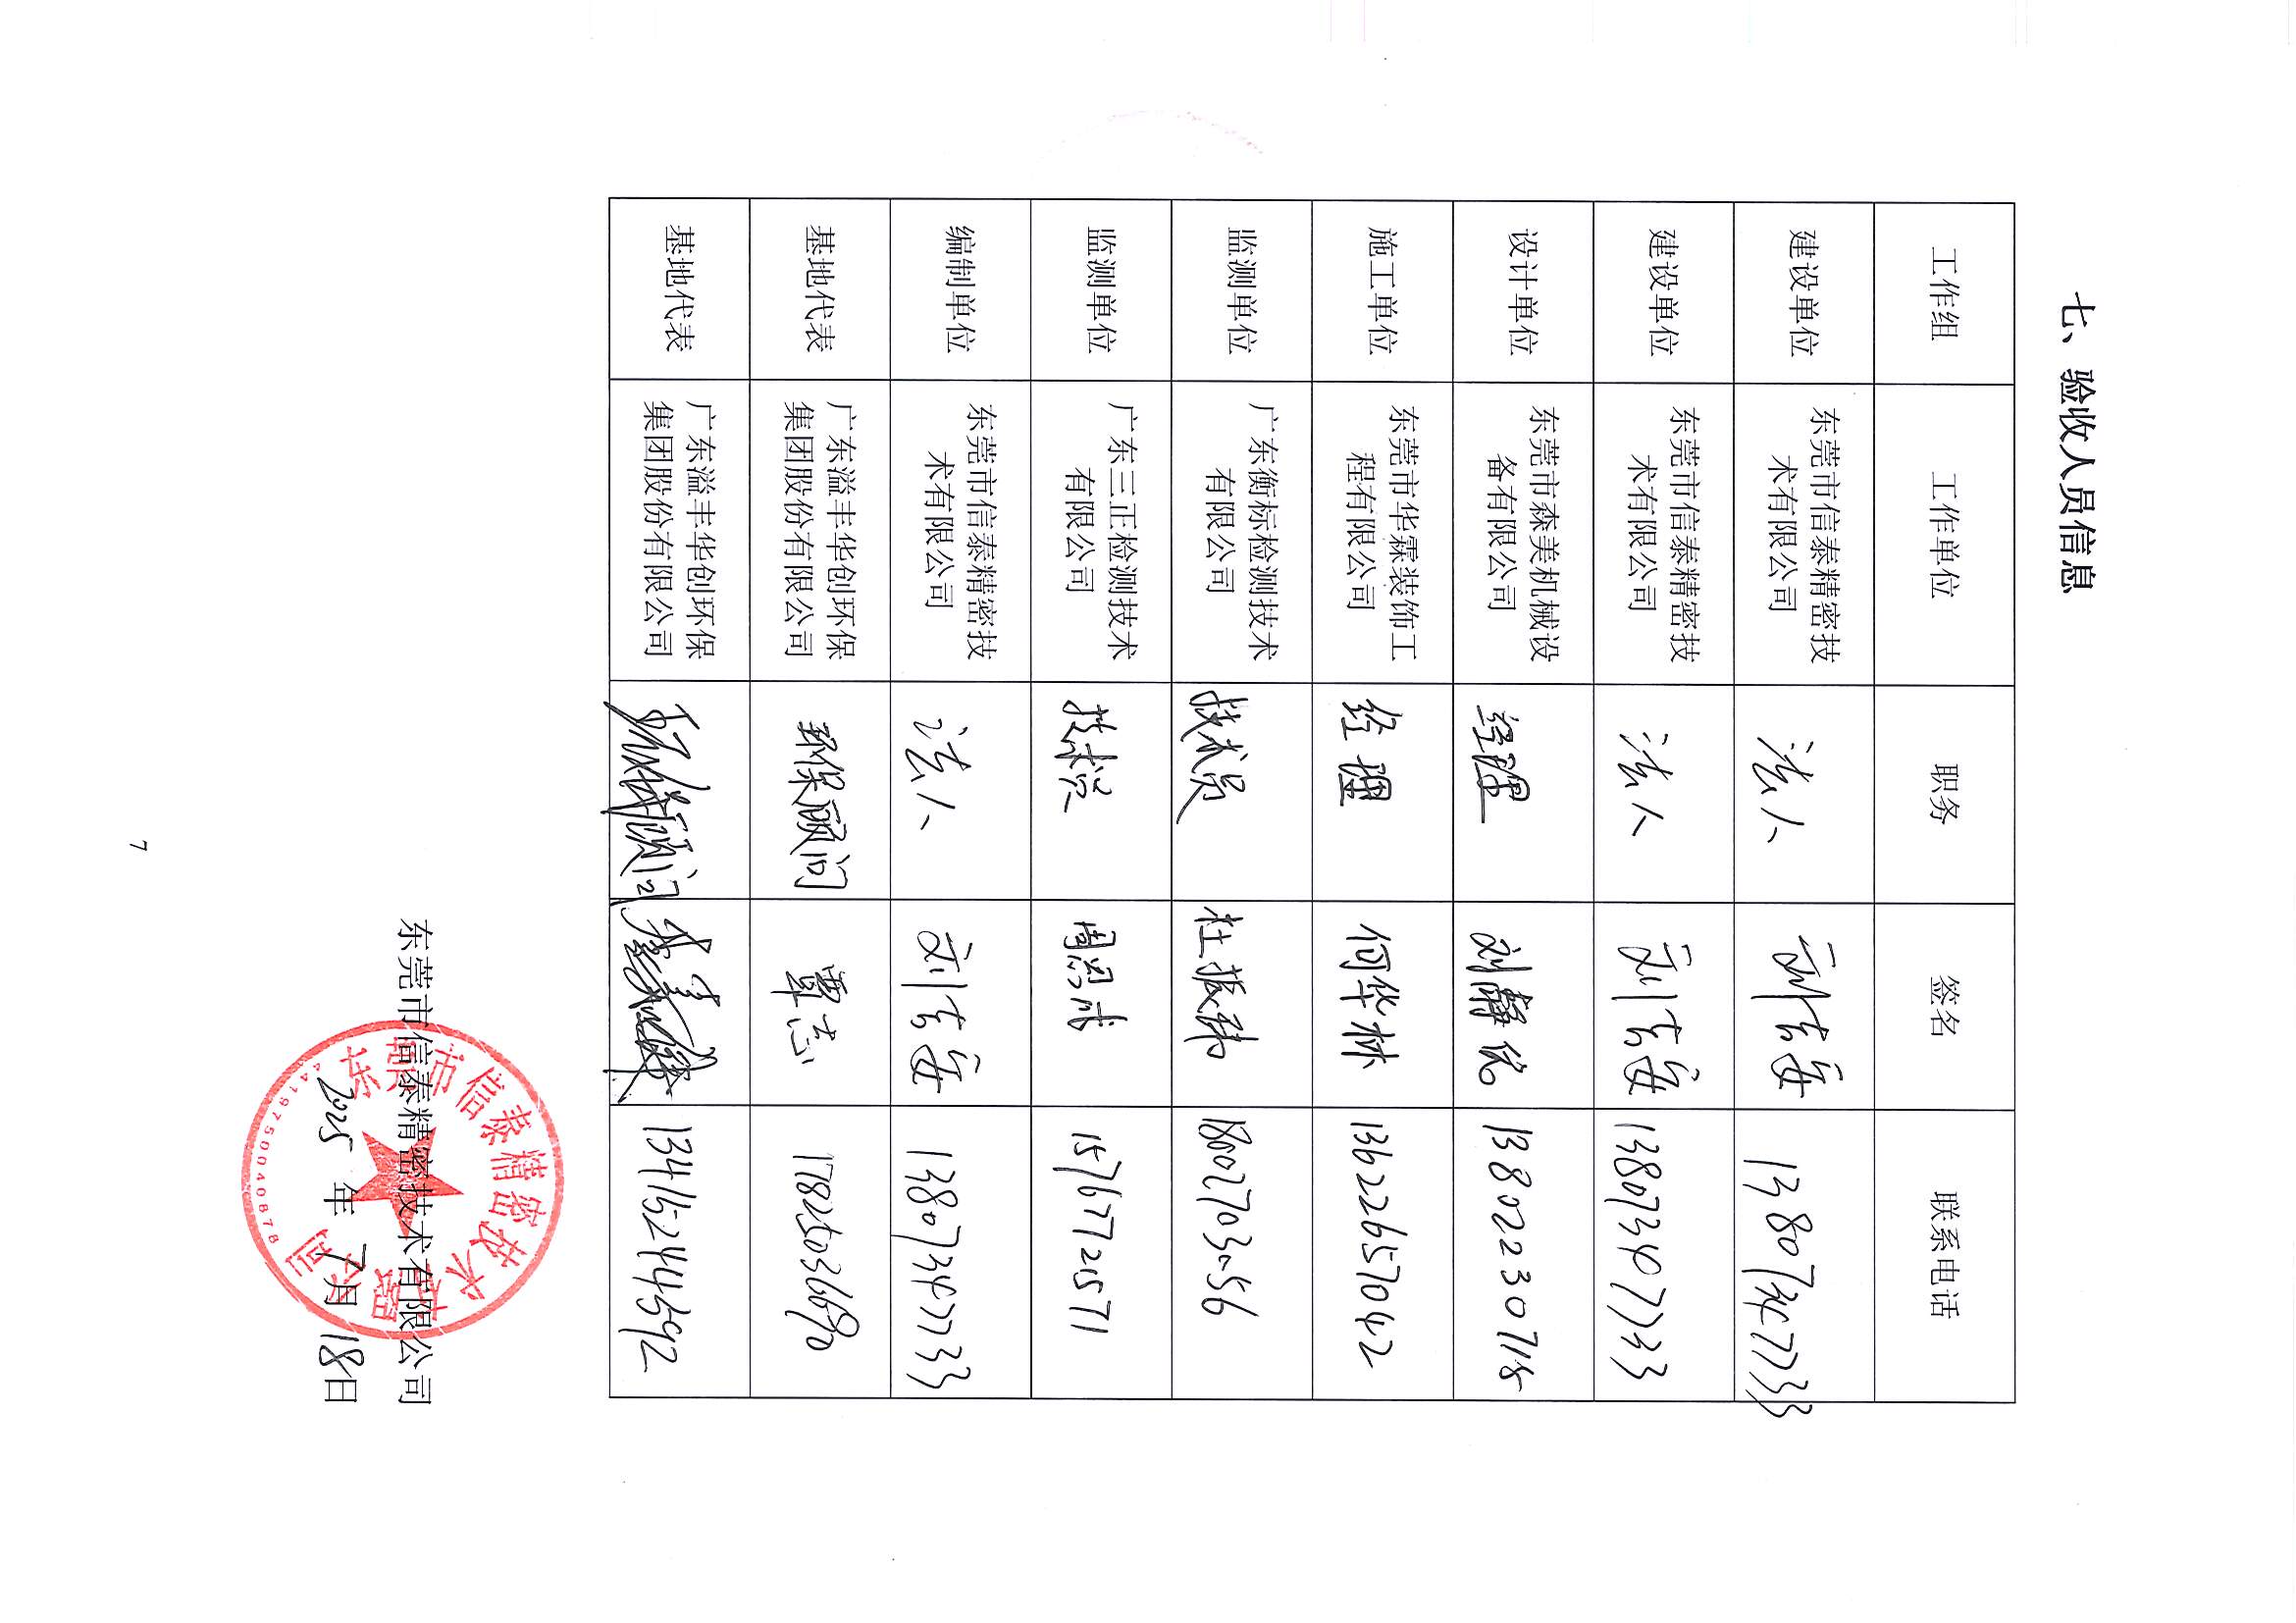 七、验收人员信息
工作组 工作单位 职务 签名 联系电话
建设单位 东莞市信泰精密技术有限公司 法人 13807347733
建设单位 东莞市信泰精密技术有限公司 法人 13807347733
设计单位 东莞市森美机械设备有限公司 经理 13802230715
施工单位 东莞市华霖装饰工程有限公司 经理 何华林 13622657042
监测单位 广东衡标检测技术有限公司 技术员 18027703056
监测单位 广东三正检测技术有限公司 技术员 15767721571
编制单位 东莞市信泰精密技术有限公司 法人 13807347733
基地代表 广东溢丰华创环保集团股份有限公司 环保顾问 覃志
基地代表 广东溢丰华创环保集团股份有限公司 环保顾问
东莞市信泰精密技术有限公司
2025年7月18日
东莞市信泰精密技术有限公司
4419750040878
7